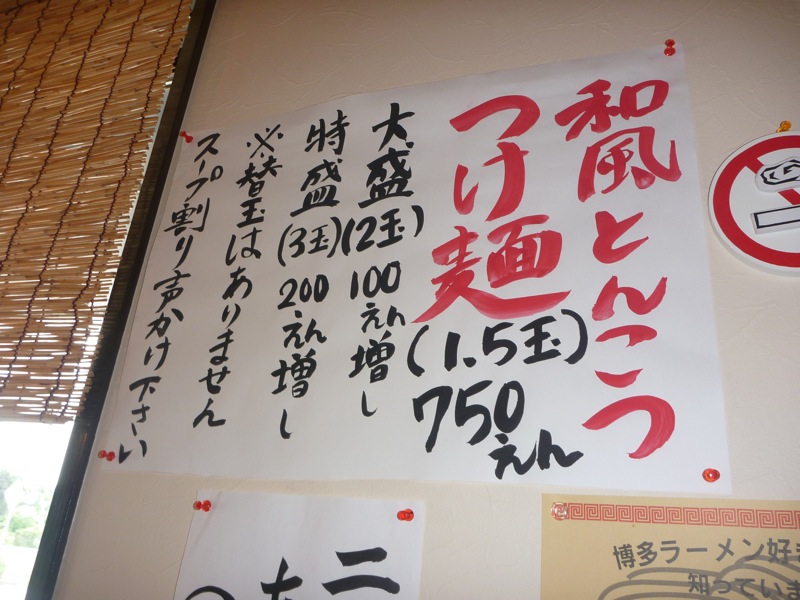 和風とんこつ
つけ麺
(1.5玉)
750えん
大盛(2玉)100えん増し
特盛(3玉)200えん増し
※替玉はありません
スープ割り声かけ下さい
二
博多ラーメン好き
知っていま